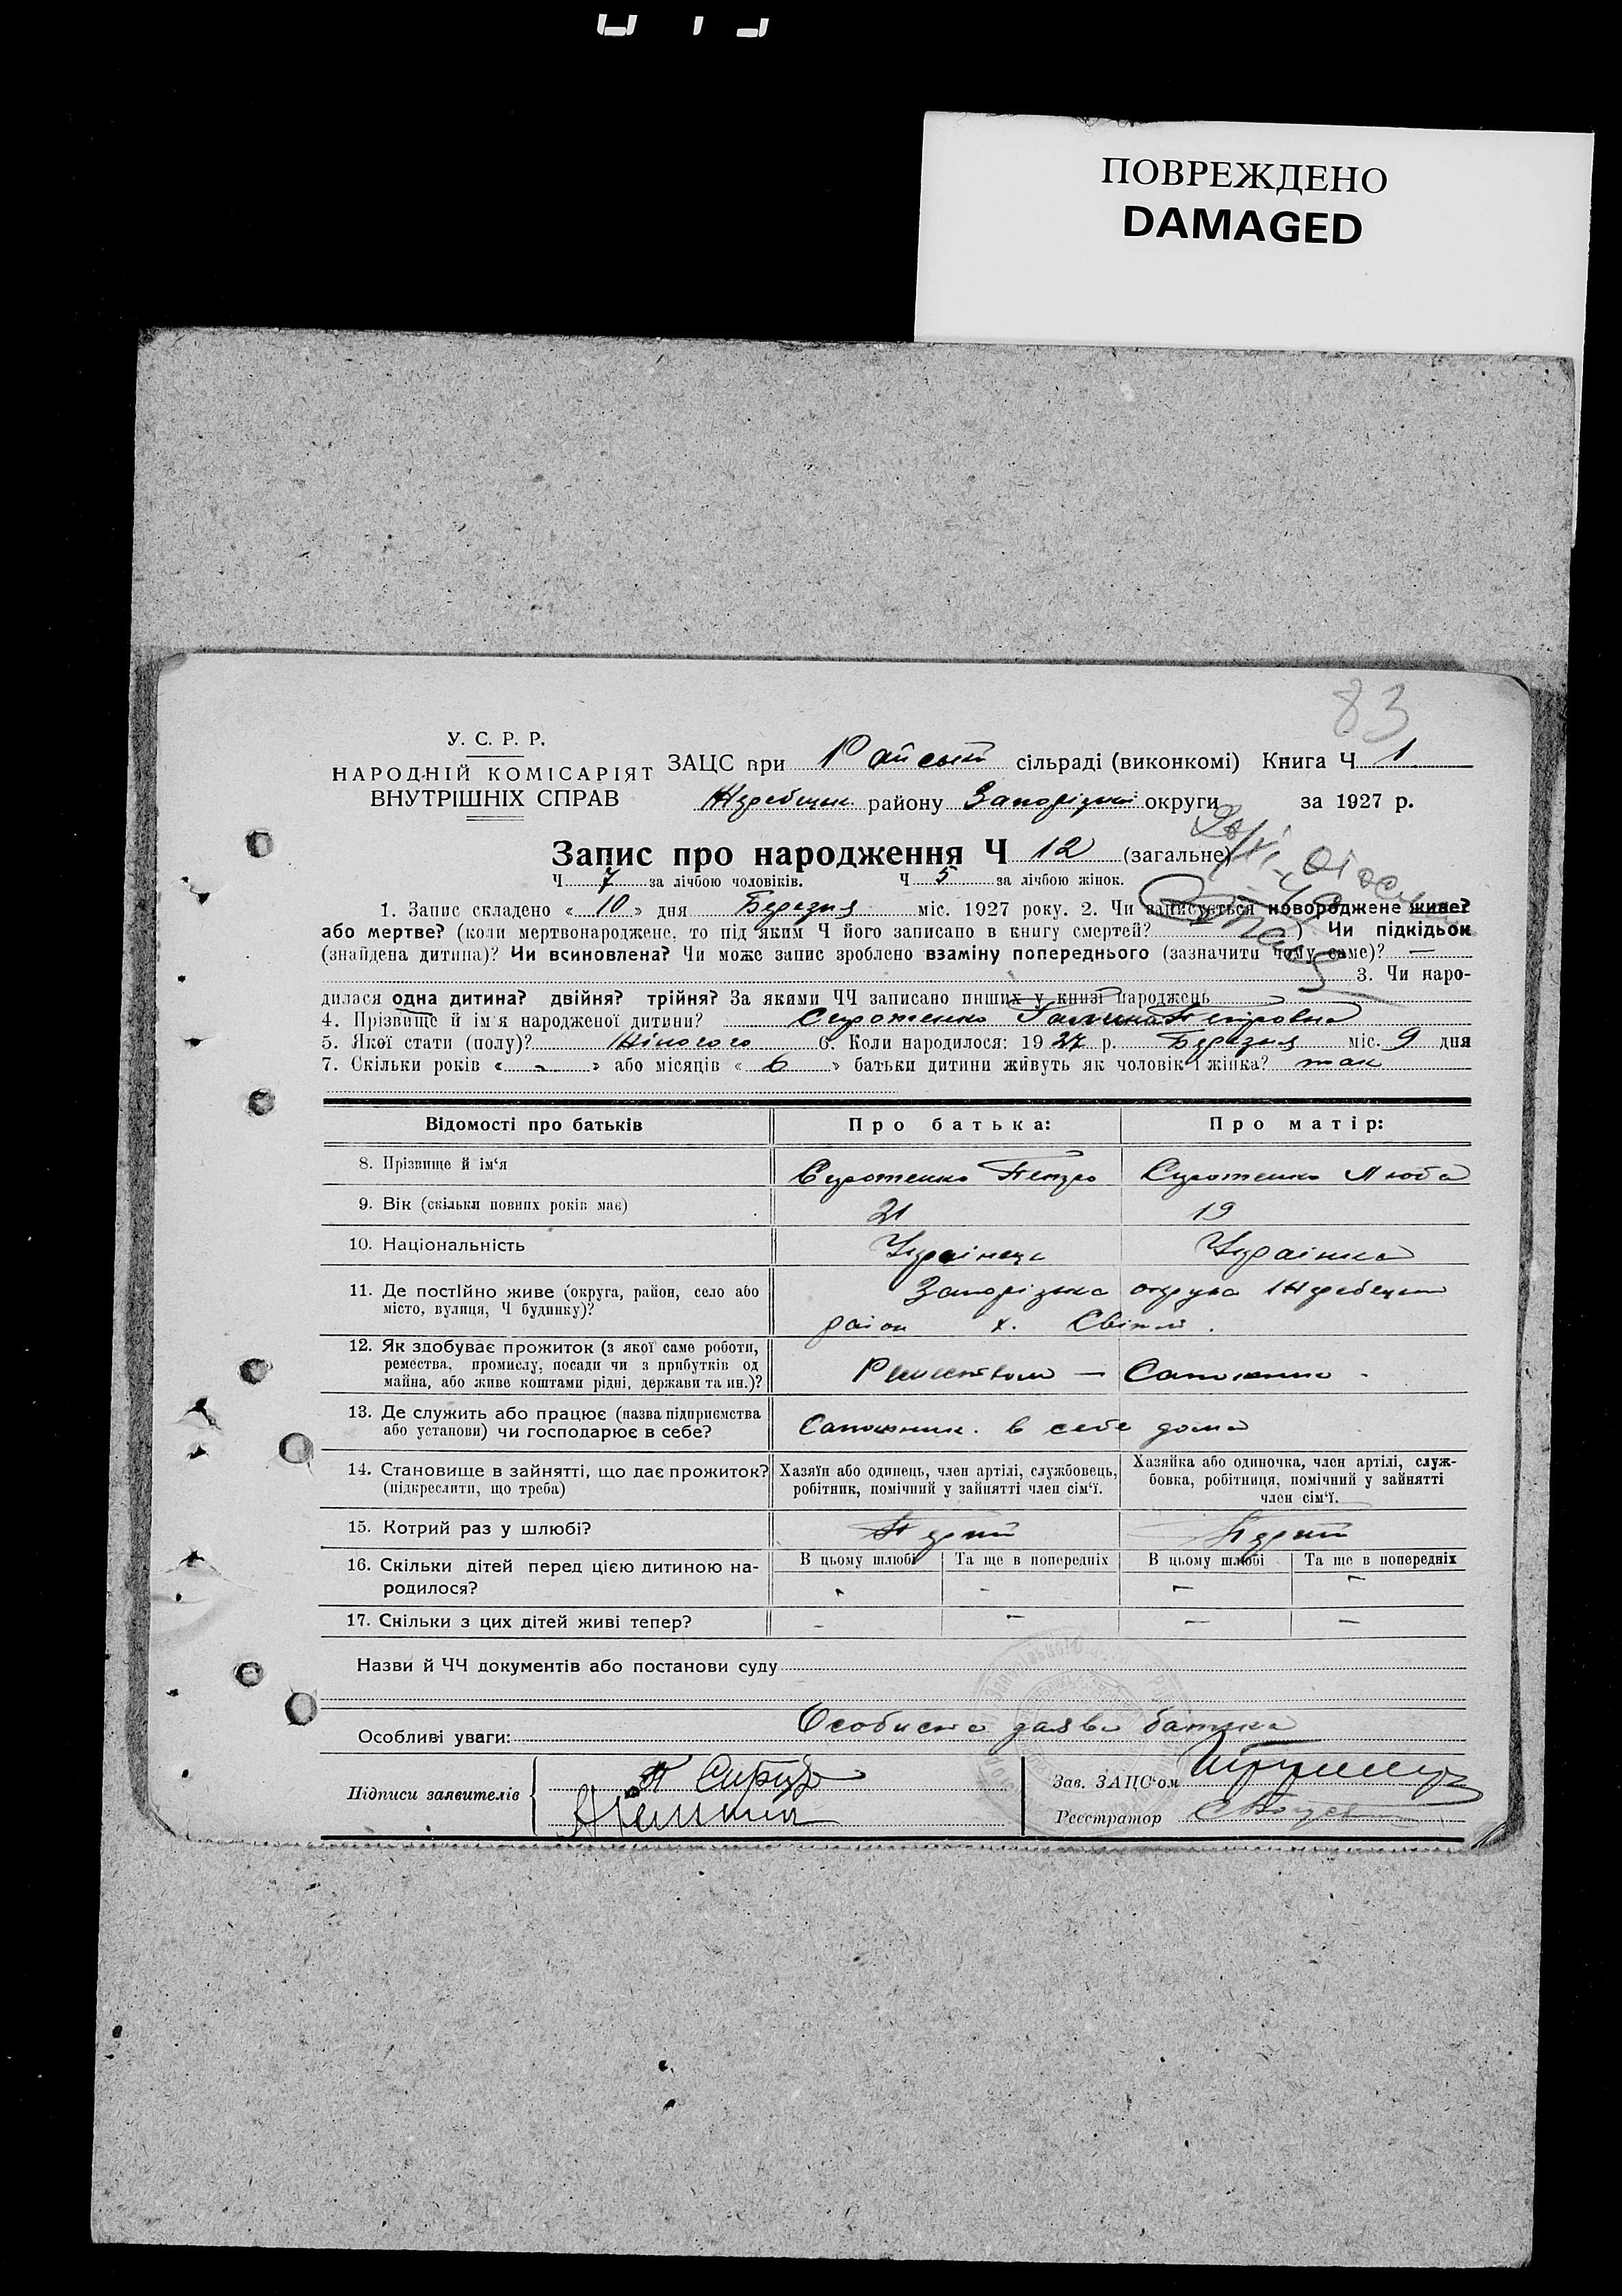 ПОВРЕЖДЕНО
DAMAGED
83
У. С. Р. Р.
НАРОДНІЙ КОМІСАРІЯТ
ВНУТРІШНІХ СПРАВ
ЗАЦС при Райській сільраді (виконкомі) Книга Ч 1
Жеребецьк. району Запорізької округи за 1927 р.
Запис про народження Ч 12 (загальне)
Ч 7 за лічбою чоловіків. Ч 5 за лічбою жінок.
1. Запис складено « 10 » дня Березня міс. 1927 року. 2. Чи записується новороджене живе?
або мертве? (коли мертвонароджене, то під яким Ч його записано в книгу смертей? ) Чи підкідьок
(знайдена дитина)? Чи всиновлена? Чи може запис зроблено взаміну попереднього (зазначити чому саме)? —
3. Чи наро-
дилася одна дитина? двійня? трійня? За якими ЧЧ записано инших у книзі народжень
4. Прізвище й ім'я народженої дитини? Сироженко Галина Петровна
5. Якої статі (полу)? Жіночого 6. Коли народилося: 1927 р. Березня міс. 9 дня
7. Скільки років « - » або місяців « 6 » батьки дитини живуть як чоловік і жінка? так
Відомості про батьків Про батька: Про матір:
8. Прізвище й ім'я Сироженко Петро Сироженко Люба
9. Вік (скільки повних років має) 21 19
10. Національність Українець Українка
11. Де постійно живе (округа, район, село або
місто, вулиця, Ч будинку)?
Запорізька округа Жеребецький
район х.
12. Як здобуває прожиток (з якої саме роботи,
ремества, промислу, посади чи з прибутків од
майна, або живе коштами рідні, держави та ин.)?
— Сапожник.
13. Де служить або працює (назва підприємства
або установи) чи господарює в себе?
Сапожник. в себе дома
14. Становище в зайнятті, що дає прожиток?
(підкреслити, що треба)
Хазяїн або одинець, член артілі, службовець,
робітник, помічний у зайнятті член сім'ї.
Хазяйка або одиночка, член артілі, служ-
бовка, робітниця, помічний у зайнятті
член сім'ї.
15. Котрий раз у шлюбі? Перший Перший
16. Скільки дітей перед цією дитиною на-
родилося?
В цьому шлюбі Та ще в попередніх В цьому шлюбі Та ще в попередніх
- - - -
17. Скільки з цих дітей живі тепер? - - - -
Назви й ЧЧ документів або постанови суду
Особливі уваги: Особиста заява батька
Підписи заявителів
Зав. ЗАЦС'ом
Реєстратор